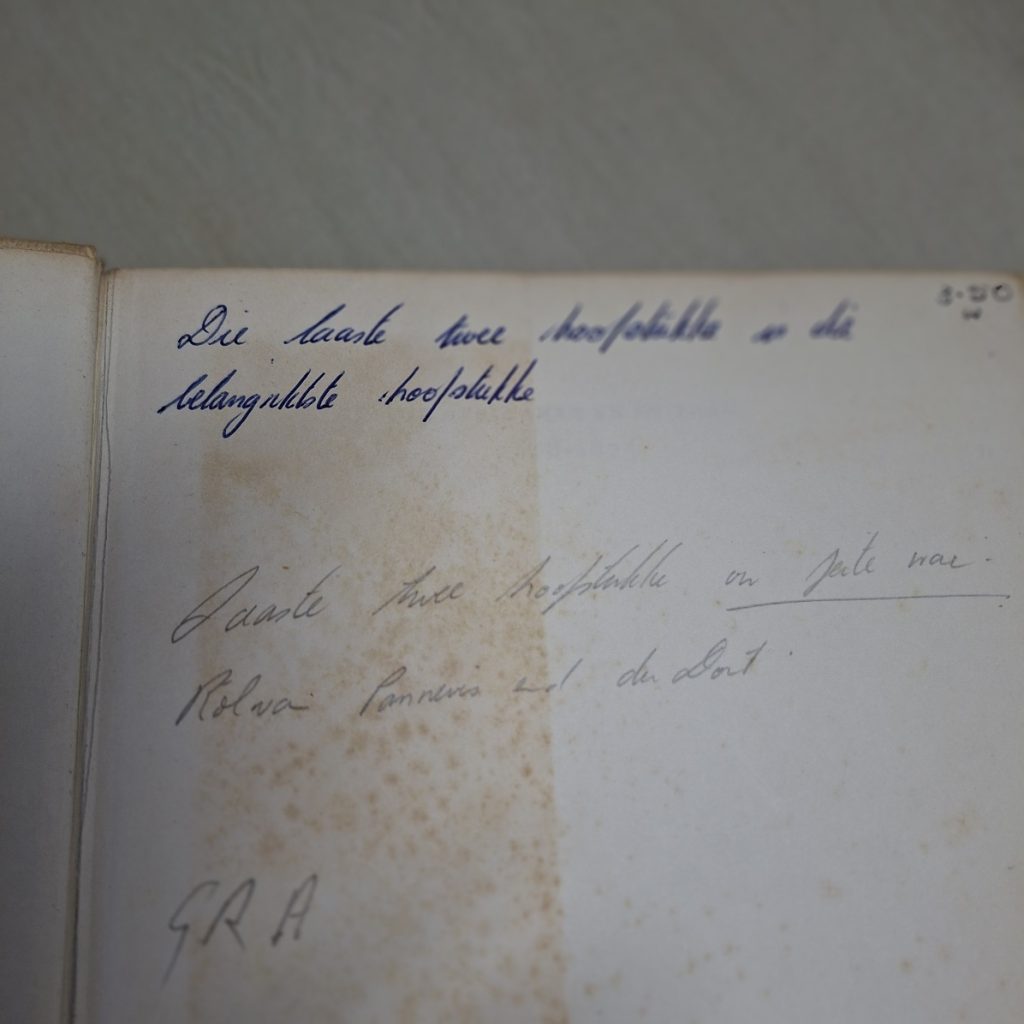 Die laaste twee hoofstukke is die
belangrikste hoofstukke
Laaste twee hoofstukke en feite
Rol van Pannevis and du Doit
GRA